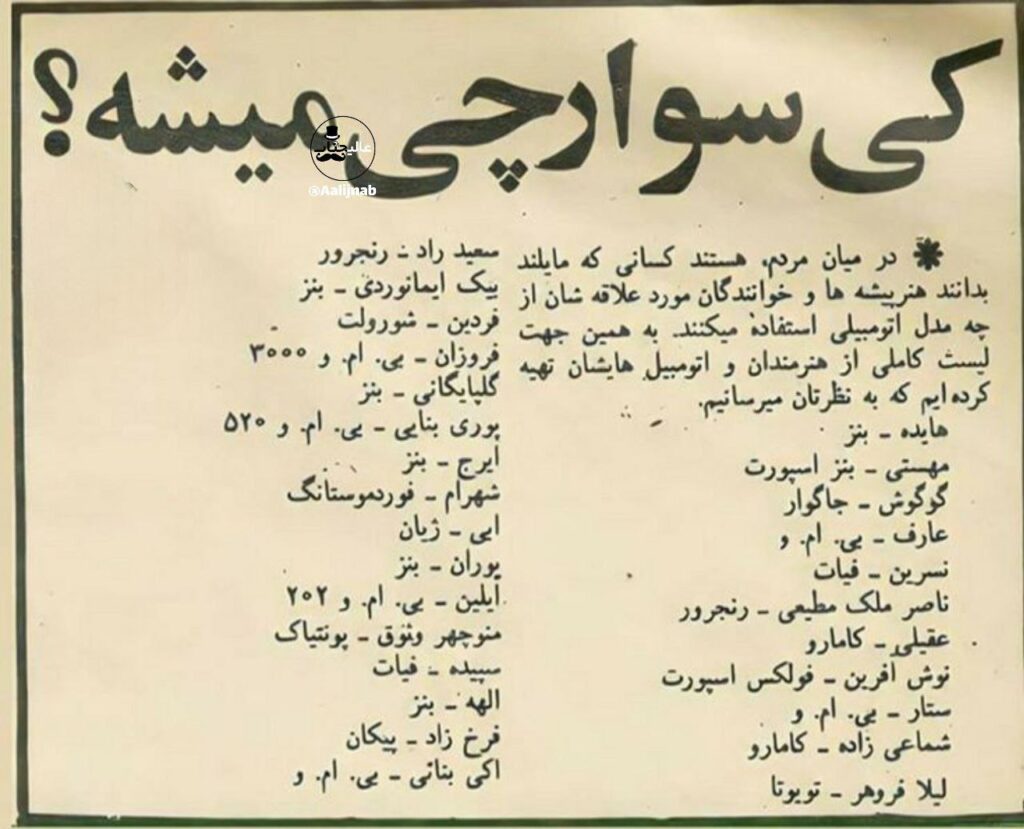 کی سوار چی میشه؟
عالیجناب
@Aalijnab
* در میان مردم، هستند کسانی که مایلند
بدانند هنرپیشه ها و خوانندگان مورد علاقه شان از
چه مدل اتومبیلی استفاده میکنند. به همین جهت
لیست کاملی از هنرمندان و اتومبیل هایشان تهیه
کرده ایم که به نظرتان میرسانیم.
هایده - بنز
مهستی - بنز اسپورت
گوگوش - جاگوار
عارف - بی. ام. و
نسرین - فیات
ناصر ملک مطیعی - رنجرور
عقیلی - کامارو
نوش آفرین - فولکس اسپورت
ستار - بی. ام. و
شماعی زاده - کامارو
لیلا فروهر - تویوتا
سعید راد - رنجرور
بیک ایمانوردی - بنز
فردین - شورولت
فروزان - بی. ام. و ۳۰۰۰
گلپایگانی - بنز
پوری بنایی - بی. ام. و ۵۲۰
ایرج - بنز
شهرام - فوردموستانگ
ابی - ژیان
پوران - بنز
آیلین - بی. ام. و ۲۰۲
منوچهر وثوق - پونتیاک
سپیده - فیات
الهه - بنز
فرخ زاد - پیکان
اکی بنائی - بی. ام. و